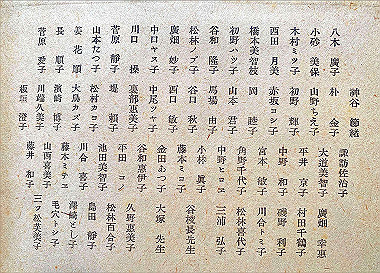 神谷 節緒
諏訪佐治子
八木 廣子
朴 金子
大道美智子
廣畑 幸惠
小砂 美保
山野ちえ子
平井 京子
村田千鶴子
木村ミツ子
初野 輝子
中野 和子
磯野 利子
西田 月美
赤坂コシ子
宮本 敏子
川合トミ子
橋本美智枝
岡 睦子
角野千代子
松林喜代子
初野ハツ子
山本 君子
中野ヒロヱ
三浦 弘子
谷和 隆子
馬場 由子
小林 眞子
松林ノブ子
谷口 秋子
藤本ミコ子
谷稜長先生
廣畑 妙子
西口 敏子
金田あつ子
大塚 先生
中口ヤス子
中尾ツヤ子
谷和惠伊子
久野惠美子
川口 操
裏部惠美子
平田 コノ
松林百合子
菅原 靜子
堤 頼子
池田美智子
島田 靜子
山本たつ子
松村カコ子
川合 喜子
澤崎とし子
姜花順子
大鳥カズ子
藤本ミテヱ
毛穴トシ子
長 順子
濱崎 博子
山西喜美子
三ツ松英美子
菅原 愛子
川端眞美子
藤井 和子
板垣 澄子